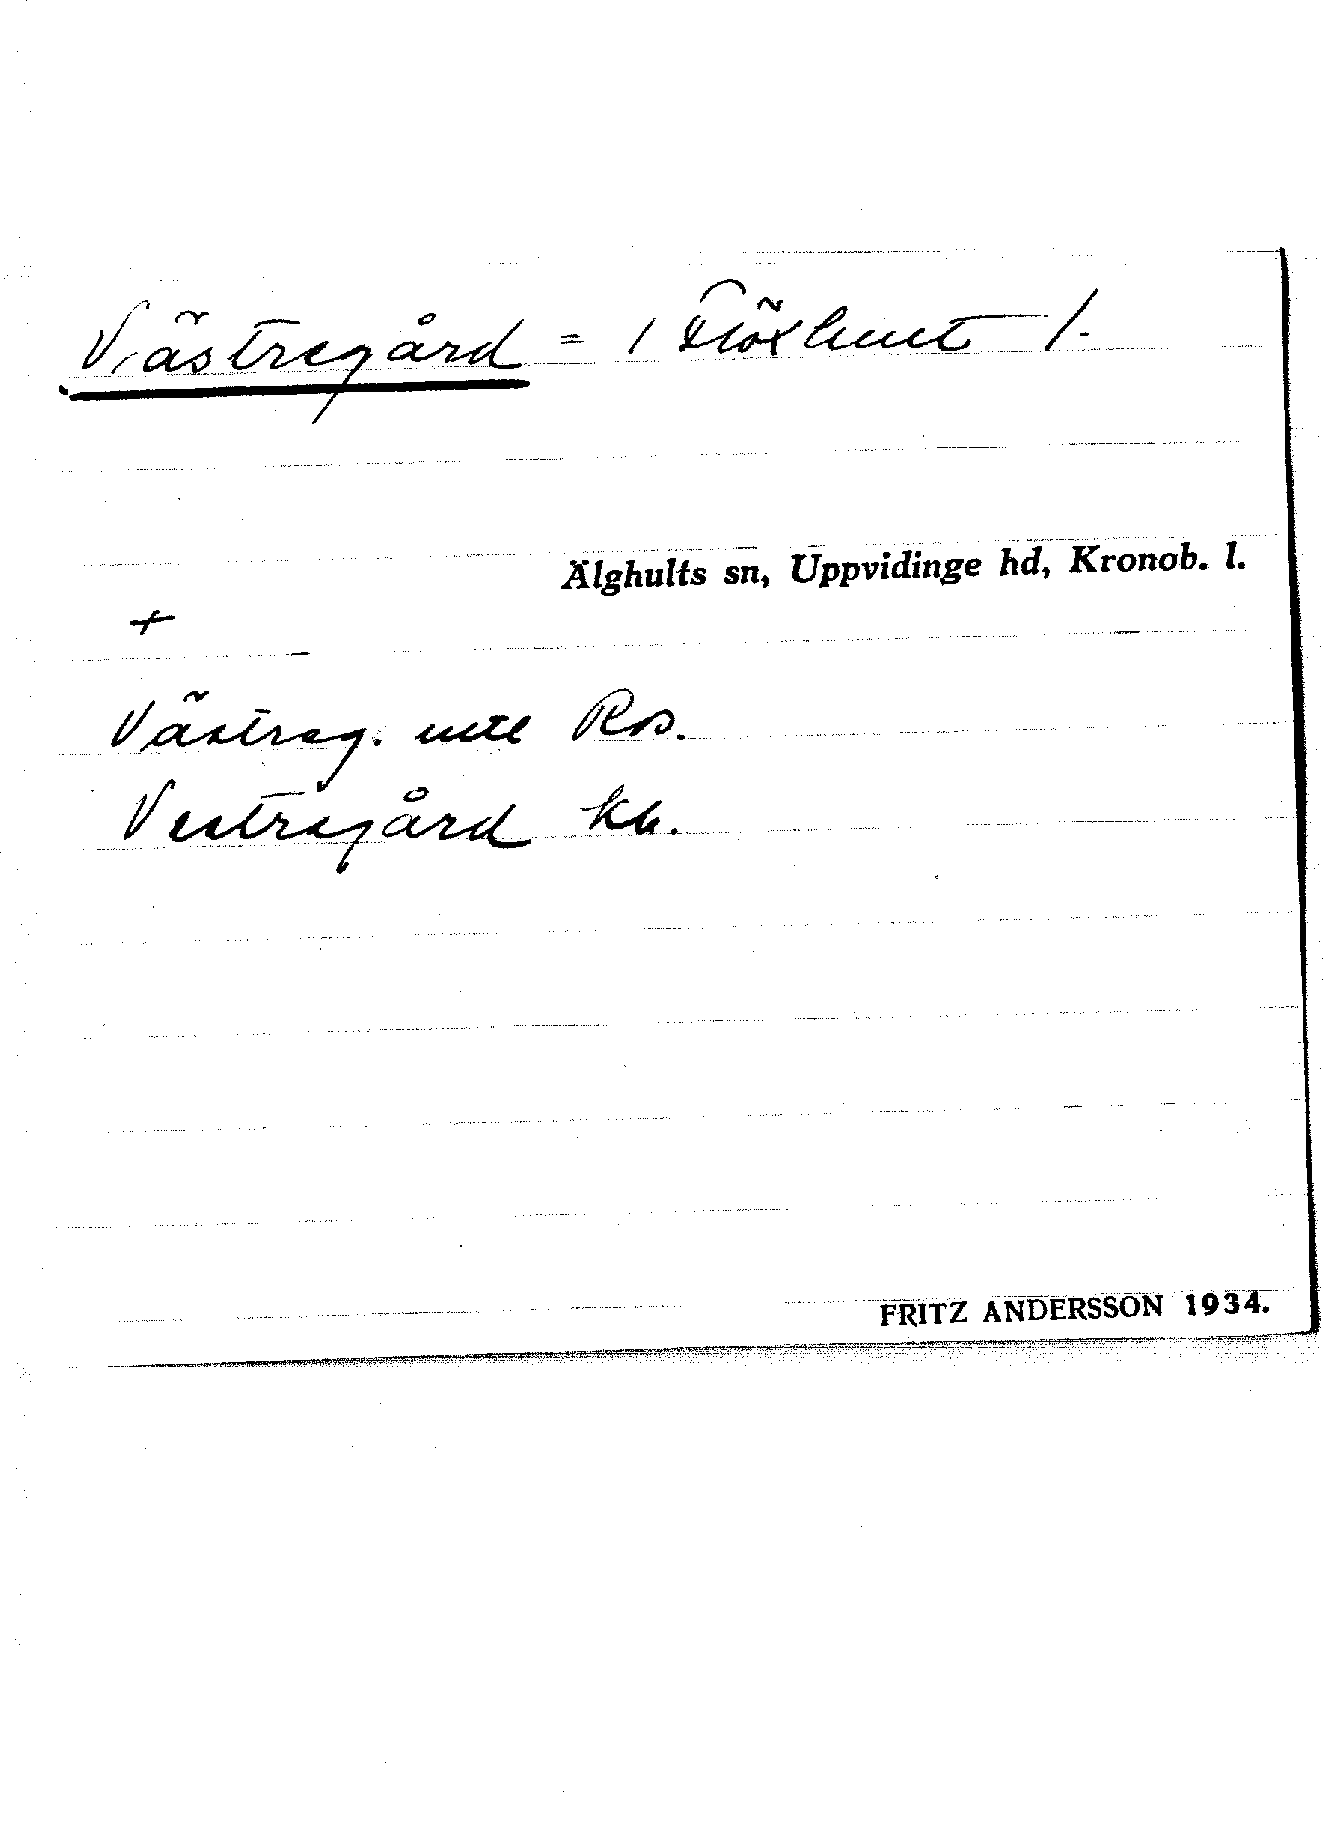 Västregård = / Flöxhult /.
Älghults sn, Uppvidinge hd, Kronob. l.
+
Västreg. mtl Ros.
Vestregård kb.
FRITZ ANDERSSON 1934.